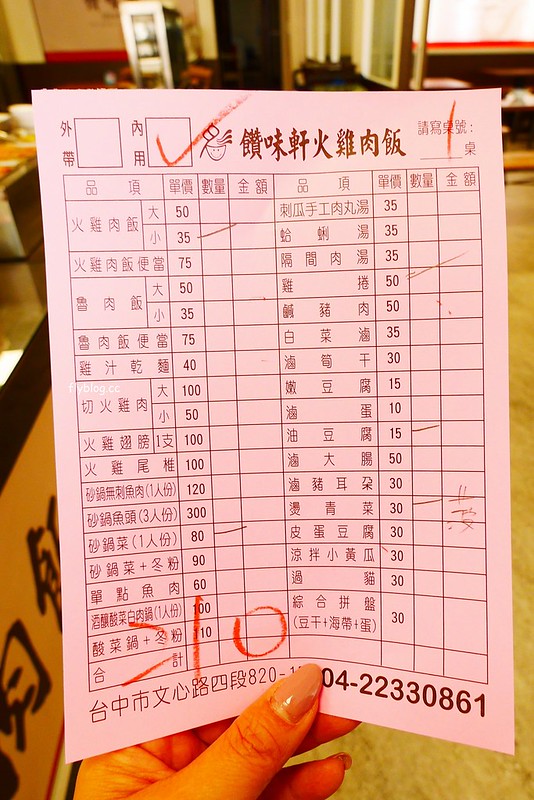 外帶 內用 饡味軒火雞肉飯 請寫桌號: 1 桌
品項 單價 數量 金額 品項 單價 數量 金額
火雞肉飯 大 50
小 35 一
火雞肉飯便當 75
魯肉飯 大 50
小 35
魯肉飯便當 75
雞汁乾麵 40
切火雞肉 大 100
小 50
火雞翅膀 1支 100
火雞尾椎 100
砂鍋無刺魚肉(1人份) 120
砂鍋魚頭(3人份) 300
砂鍋菜(1人份) 80 一
砂鍋菜+冬粉 90
單點魚肉 60
酒釀酸菜白肉鍋(1人份) 100
酸菜鍋+冬粉 110
合計 210
刺瓜手工肉丸湯 35
蛤蜊湯 35
隔間肉湯 35
雞捲 50 一
鹹豬肉 50
白菜滷 35
滷筍干 30
嫩豆腐 15
滷蛋 10
油豆腐 15 一
滷大腸 50
滷豬耳朶 30
燙青菜 30 一
皮蛋豆腐 30
涼拌小黃瓜 30
過貓 30
綜合拼盤(豆干+海帶+蛋) 30
台中市文心路四段820-1 04-22330861
flyblog.cc